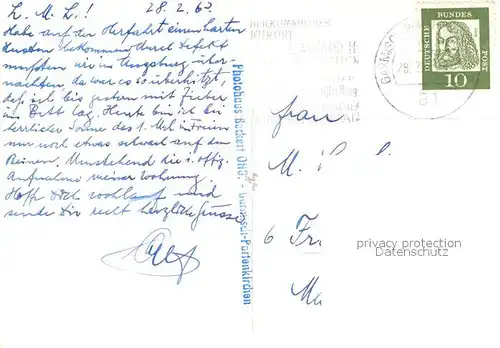 L. M. L.! 28.2.63
Habe auf der Herfahrt einen harten
Husten bekommen durch Defekt
mußten wir in Augsburg über-
nachten, da war es so überhitzt,
daß ich bis gestern mit Fieber
im Bett lag. Heute bin ich bei
herrlicher Sonne das 1. Mal im Freien
nur noch etwas schwach auf den
Beinen. Umstehend die
Aufnahme meiner Wohnung.
Hoffe Dich wohlauf und
sende Dir recht herzliche Grüsse
Photohaus Beckert OHG. - Garmisch-Partenkirchen
HEILKLIMATISCHER
KURORT
GARMISCH
28.2
DEUTSCHE BUNDES POST
10
Frau
M.
6 Fr
Ma
privacy protection
VERITAS.de